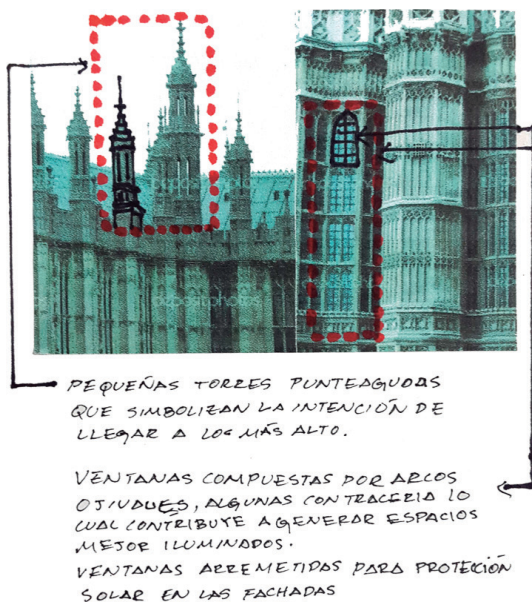 depositphotos
depositphotos
PEQUEÑAS TORRES PUNTEAGUDAS
QUE SIMBOLIZAN LA INTENCIÓN DE
LLEGAR A LOS MÁS ALTO.
VENTANAS COMPUESTAS POR ARCOS
OJIVALES, ALGUNAS CON TRACERIA LO
CUAL CONTRIBUYE A GENERAR ESPACIOS
MEJOR ILUMINADOS.
VENTANAS ARREMETIDAS PARA PROTECCIÓN
SOLAR EN LAS FACHADAS